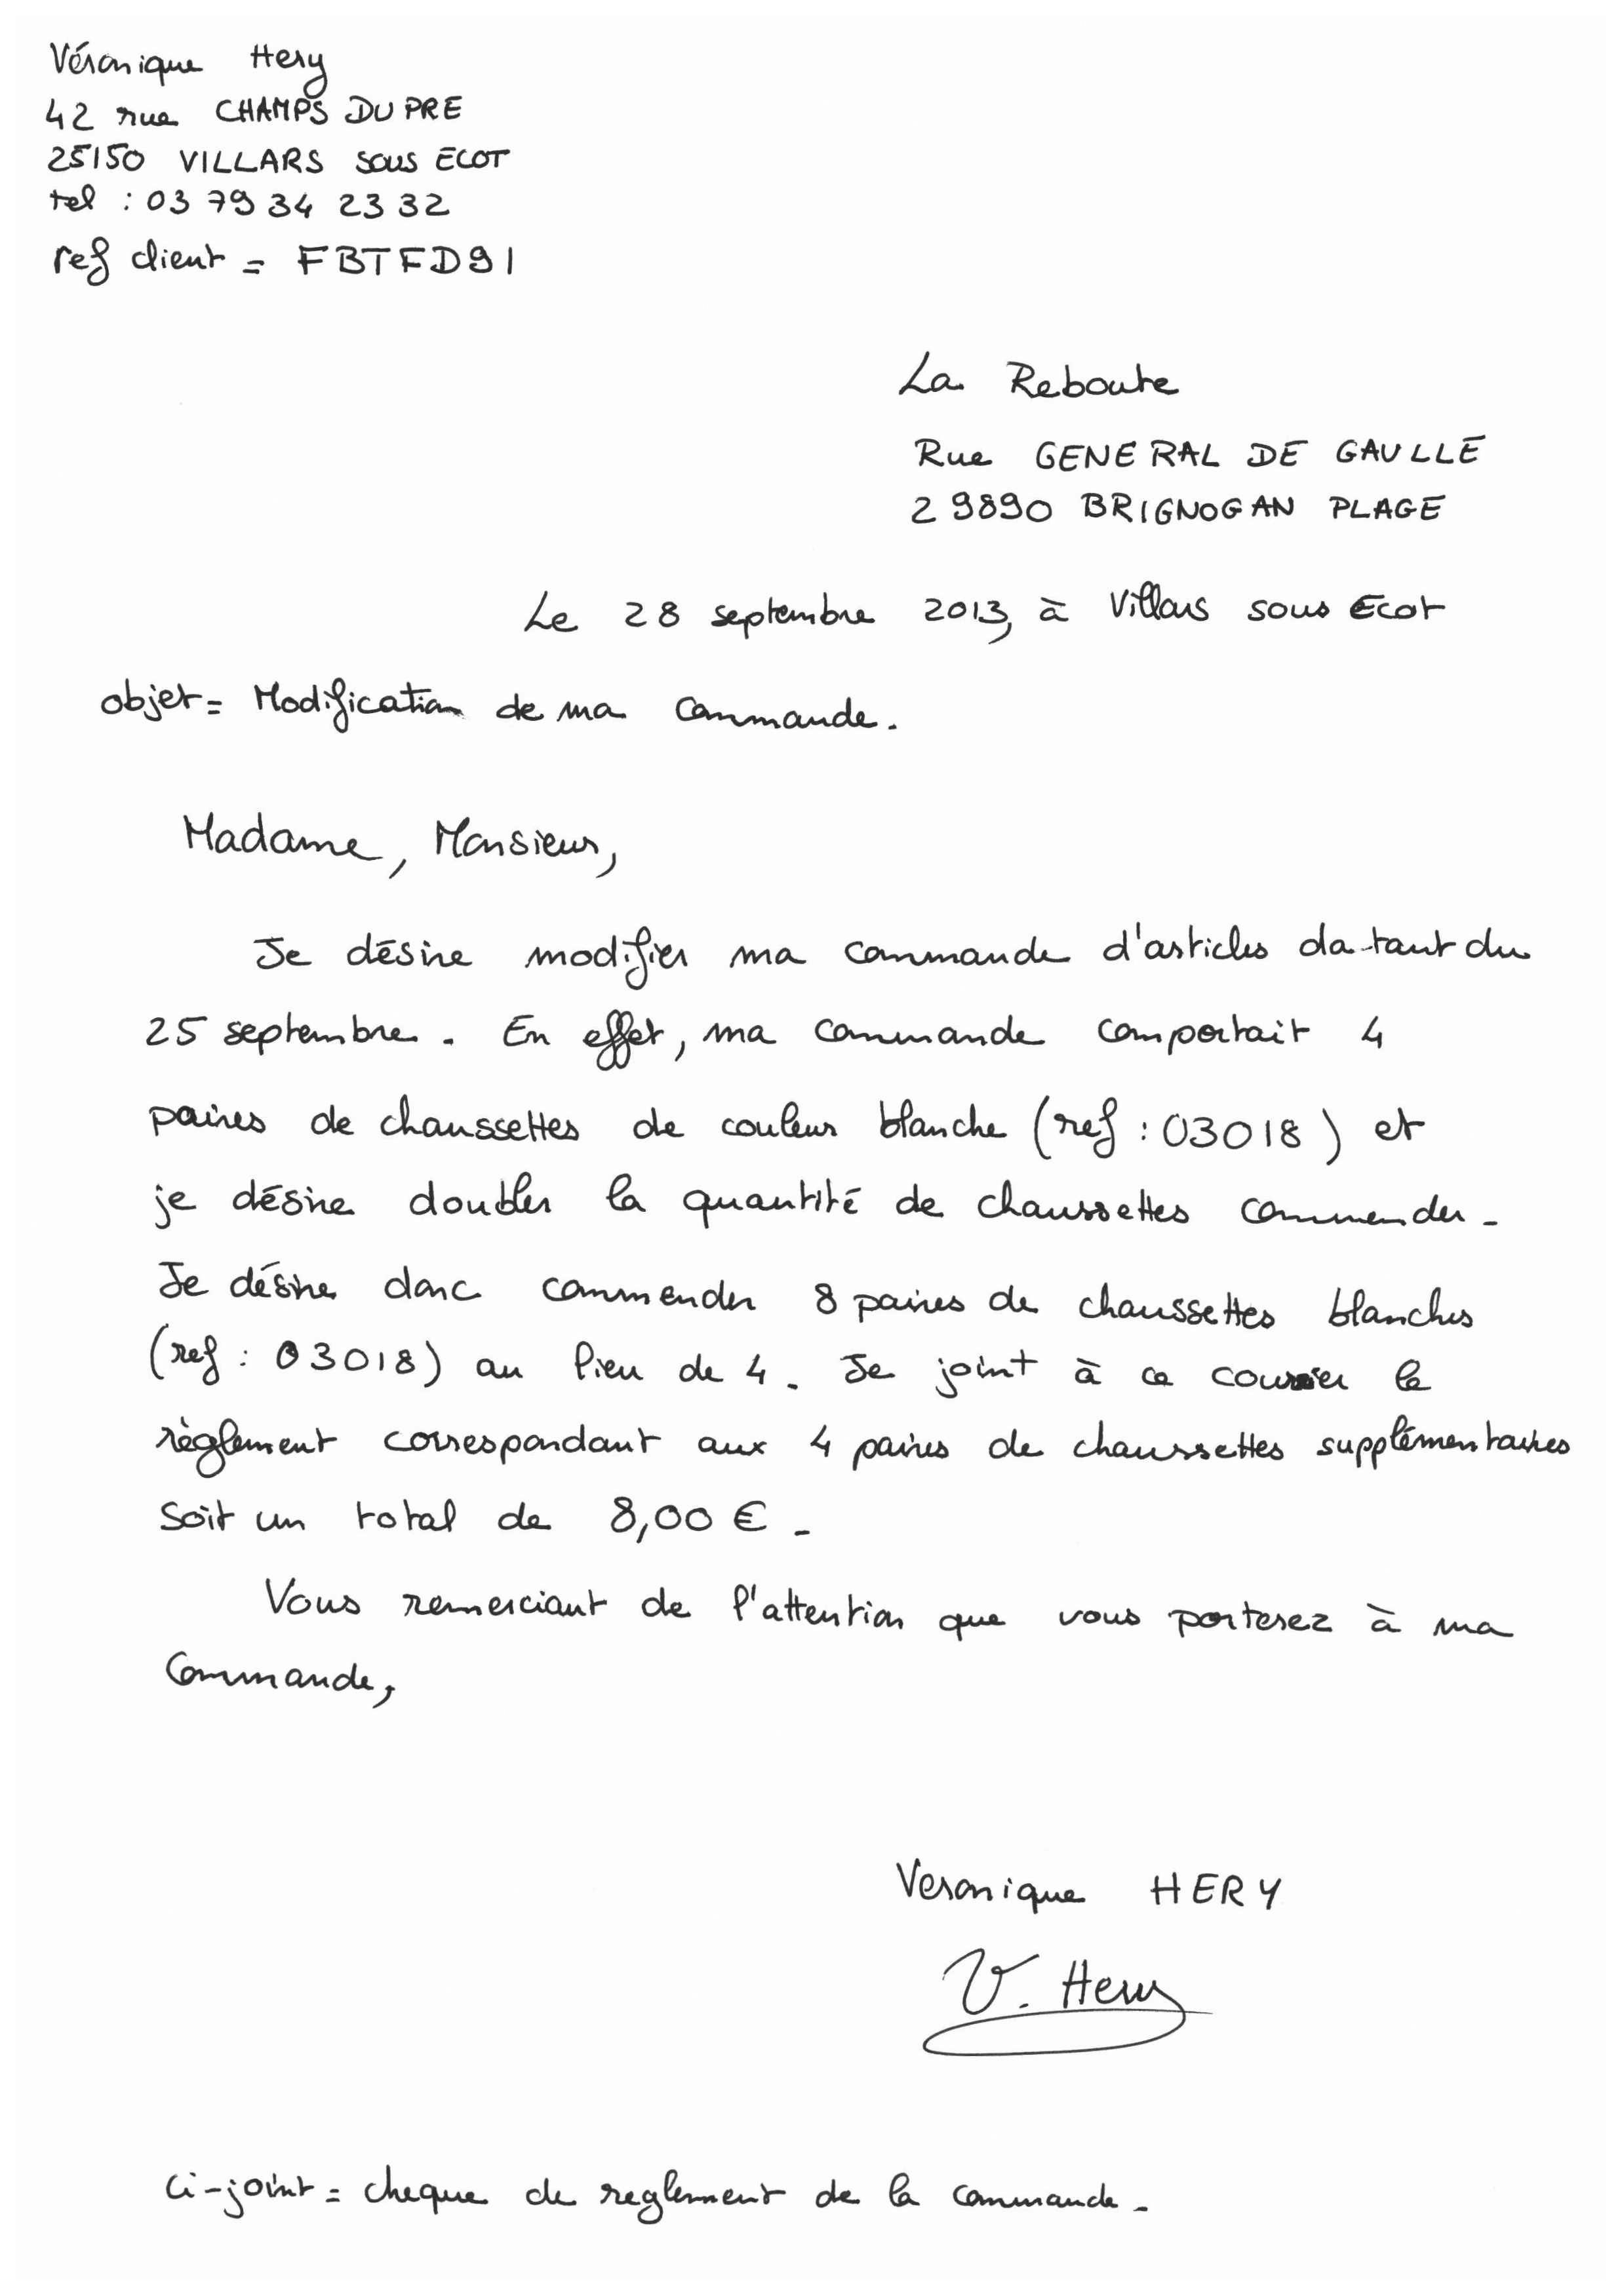 Véronique Hery
42 rue CHAMPS DU PRE
25150 VILLARS sous ECOT
tel : 03 79 34 23 32
ref client = FBTFD91
La Reboute
Rue GENERAL DE GAULLE
29890 BRIGNOGAN PLAGE
Le 28 septembre 2013, à Villars sous Ecot
objet = Modification de ma commande.
Madame, Monsieur,
Je désire modifier ma commande d'articles datant du
25 septembre. En effet, ma commande comportait 4
paires de chaussettes de couleur blanche (ref : 03018) et
je désire doubler la quantité de chaussettes commender.
Je désire donc commender 8 paires de chaussettes blanches
(ref : 03018) au lieu de 4. Je joint à ce courrier le
règlement correspondant aux 4 paires de chaussettes supplémentaires
soit un total de 8,00 €.
Vous remerciant de l'attention que vous porterez à ma
commande,
Veronique HERY
V. Hery
ci-joint = cheque de reglement de la commande.